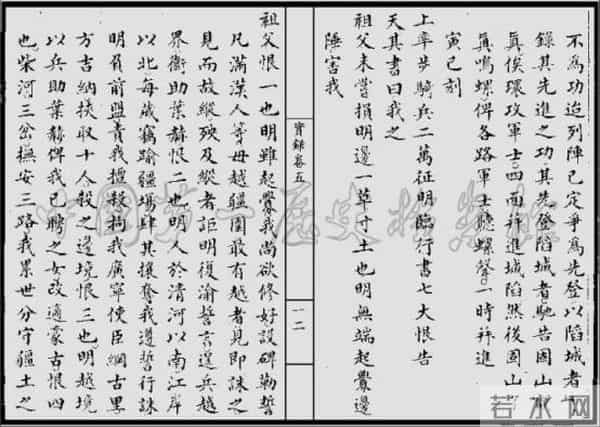 不爲功迨列陣已定爭爲先登以陷城者
錄其先進之功其先登陷城者馳告固山
眞俟環攻軍士四面並進城陷然後固山
眞鳴螺俾各路軍士聽螺聲一時並進
寅巳刻
上率步騎兵二萬征明臨行書七大恨告
天其書曰我之
祖父未嘗損明邊一草寸土也明無端起釁邊
陲害我
實錄卷五
一二
祖父恨一也明雖起釁我尚欲修好設碑勒誓
凡滿漢人等毋越疆圉敢有越者見即誅之
見而故縱殃及縱者詎明復渝誓言逞兵越
界衛助葉赫恨二也明人於清河以南江岸
以北每歲竊踰疆場肆其攘奪我遵誓行誅
明負前盟責我擅殺拘我廣寧使臣綱古里
方吉納挾取十人殺之邊境恨三也明越境
以兵助葉赫俾我已聘之女改適蒙古恨四
也柴河三岔撫安三路我累世分守疆土之
中國第一歷史檔案館
若水网